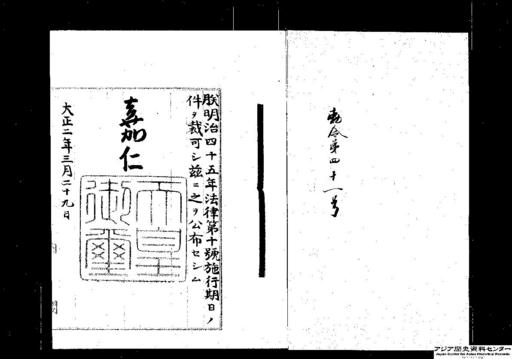 勅令第四十一号
朕明治四十五年法律第十號施行期日ノ
件ヲ裁可シ茲ニ之ヲ公布セシム
嘉仁
天皇
御璽
大正二年三月二十九日
アジア歴史資料センター
Japan Center for Asian Historical Records